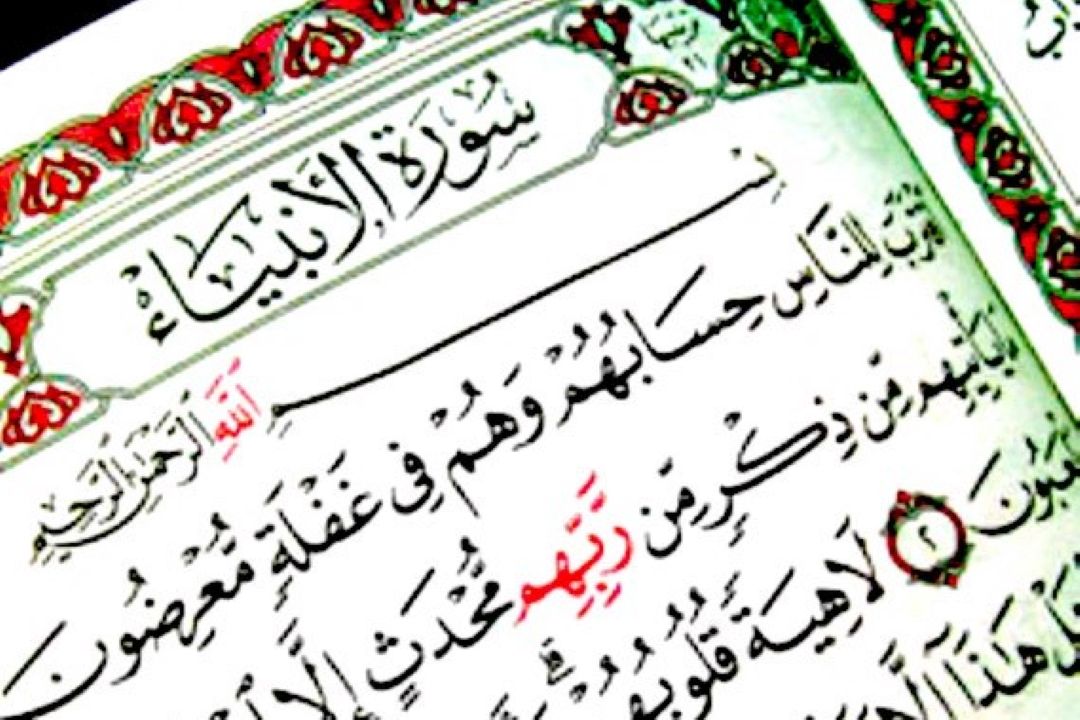 سُورَةُ الأَنبِيَاءِ
بِسْمِ اللَّهِ الرَّحْمَٰنِ الرَّحِيمِ
لِلنَّاسِ حِسَابُهُمْ وَهُمْ فِي غَفْلَةٍ مُّعْرِضُونَ
يَأْتِيهِم مِّن ذِكْرٍ مِّن رَّبِّهِم مُّحْدَثٍ إِلَّا
٢ لَاهِيَةً قُلُوبُهُمْ
هَلْ هَٰذَا إِلَّا